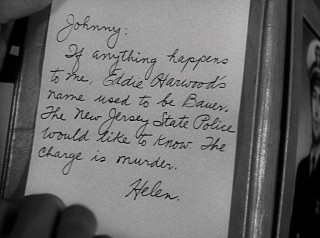 Johnny:
If anything happens
to me, Eddie Harwood's
name used to be Bauer.
The New Jersey State Police
would like to know. The
charge is murder.
Helen.